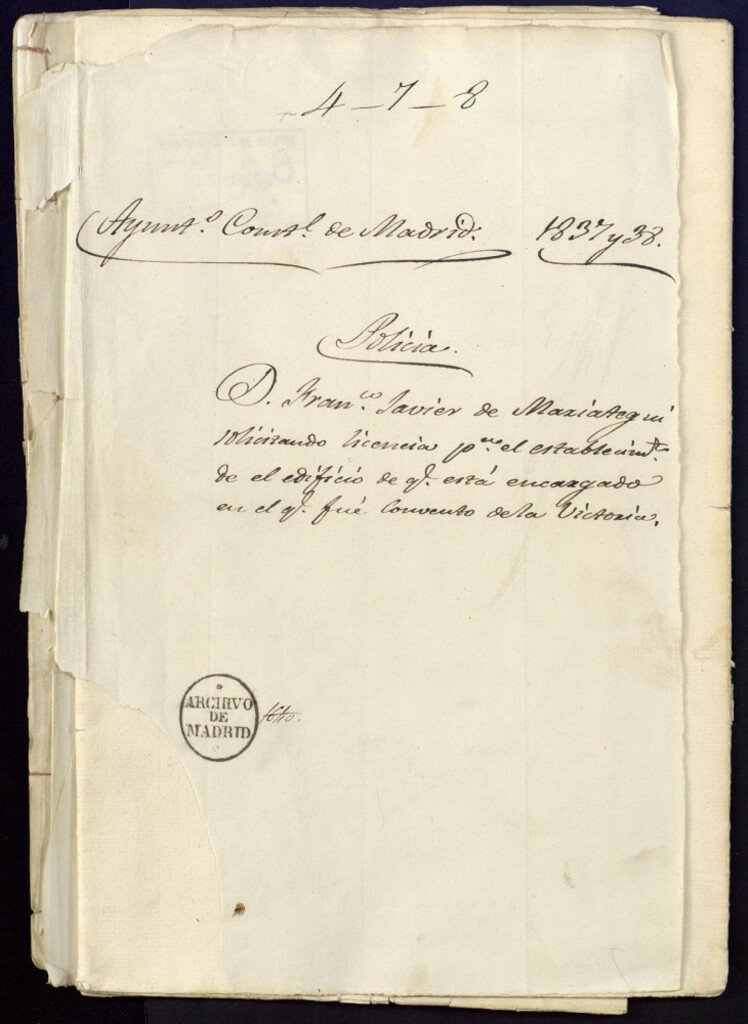 4-7-8
Ayunt.º Const.l de Madrid. 1837 y 38.
Policia.
D. Fran.co Javier de Mariategui
solicitando licencia p.a el establecim.to
de el edificio de q.e está encargado
en el q.e fué Convento de la Victoria.
ARCHIVO
DE
MADRID